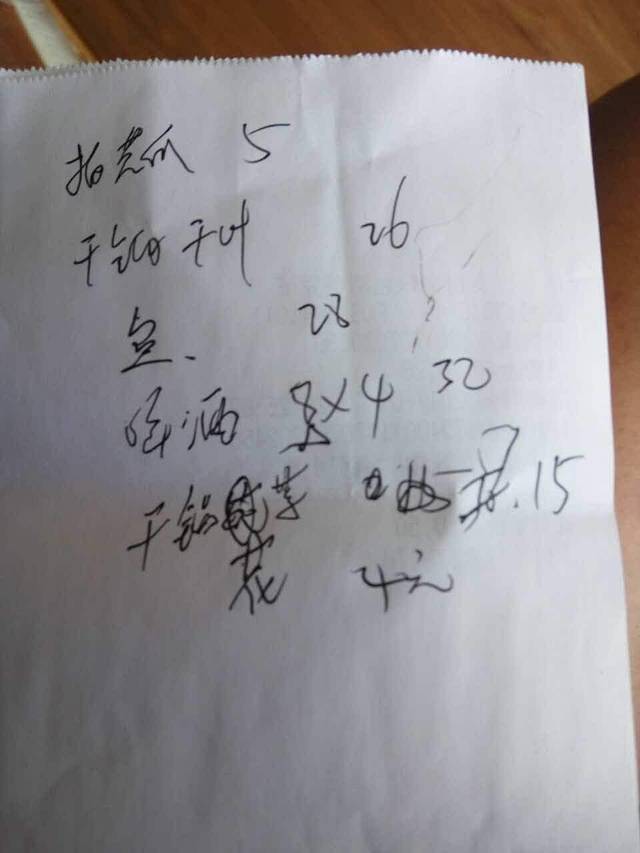 拍黄瓜 5
干锅千叶 26
鱼 28
啤酒 8×4 32
干锅 菜 15
花 4元